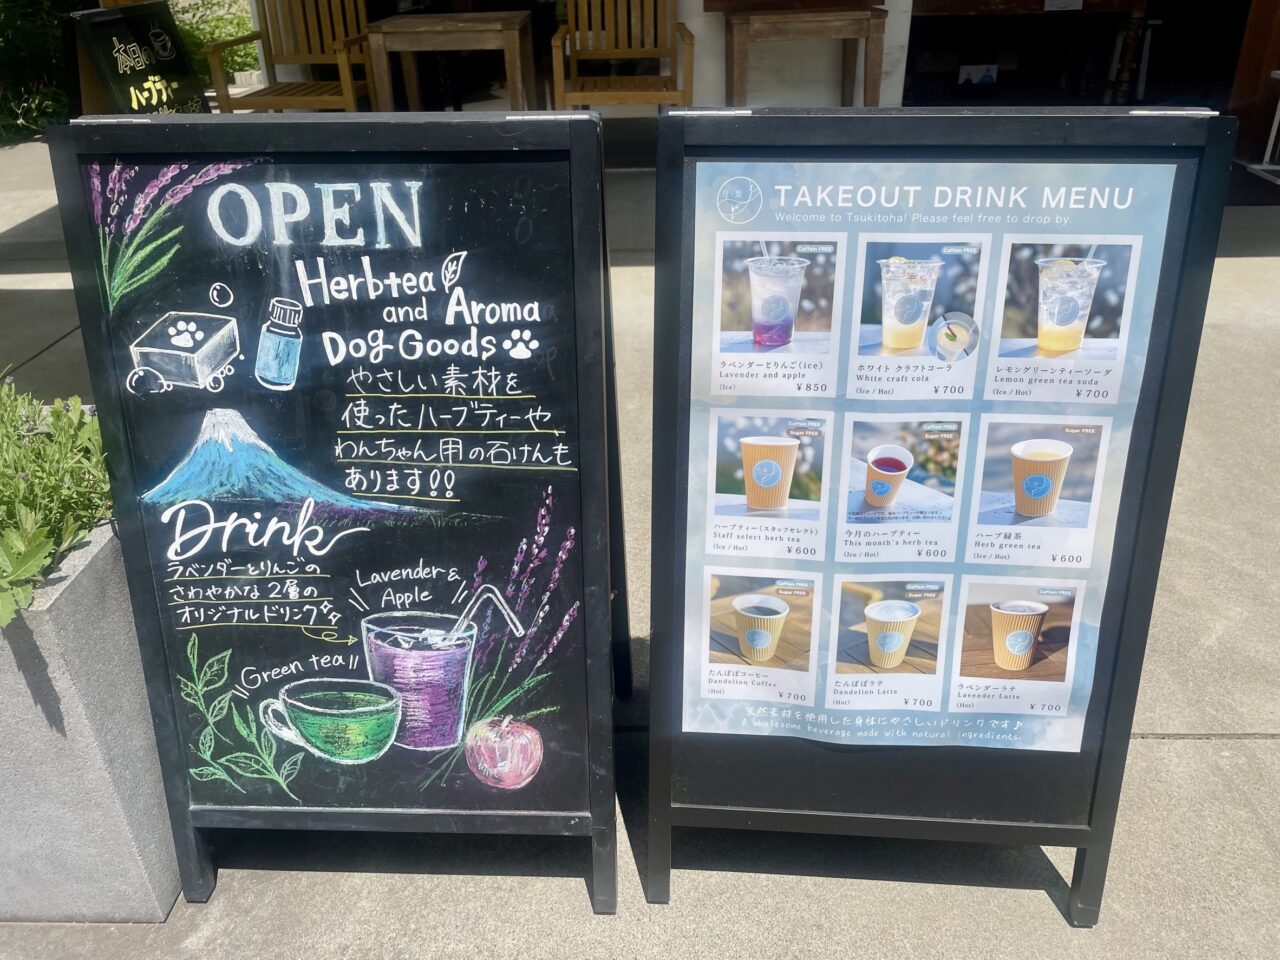 本日の
ハーブティー
OPEN
Herbtea
and Aroma
Dog Goods
やさしい素材を
使ったハーブティーや
わんちゃん用の石けんも
あります!!
Drink
ラベンダーとりんごの
さわやかな2層の
オリジナルドリンク
Lavender &
Apple
Green tea
TAKEOUT DRINK MENU
Welcome to Tsukitoha! Please feel free to drop by.
Caffein FREE
ラベンダーとりんご(ice)
Lavender and apple
(Ice)
¥850
Caffein FREE
ホワイト クラフトコーラ
White craft cola
(Ice / Hot)
¥700
レモングリーンティーソーダ
Lemon green tea soda
(Ice / Hot)
¥700
Caffein FREE
Sugar FREE
ハーブティー(スタッフセレクト)
Staff select herb tea
(Ice / Hot)
¥600
Caffein FREE
Sugar FREE
今月のハーブティー
This month's herb tea
(Ice / Hot)
¥600
Sugar FREE
ハーブ緑茶
Herb green tea
(Ice / Hot)
¥600
Caffein FREE
Sugar FREE
たんぽぽコーヒー
Dandelion Coffee
(Hot)
¥700
Caffein FREE
Sugar FREE
たんぽぽラテ
Dandelion Latte
(Hot)
¥700
Caffein FREE
ラベンダーラテ
Lavender Latte
(Hot)
¥700
天然素材を使用した身体にやさしいドリンクです♪
A wholesome beverage made with natural ingredients.